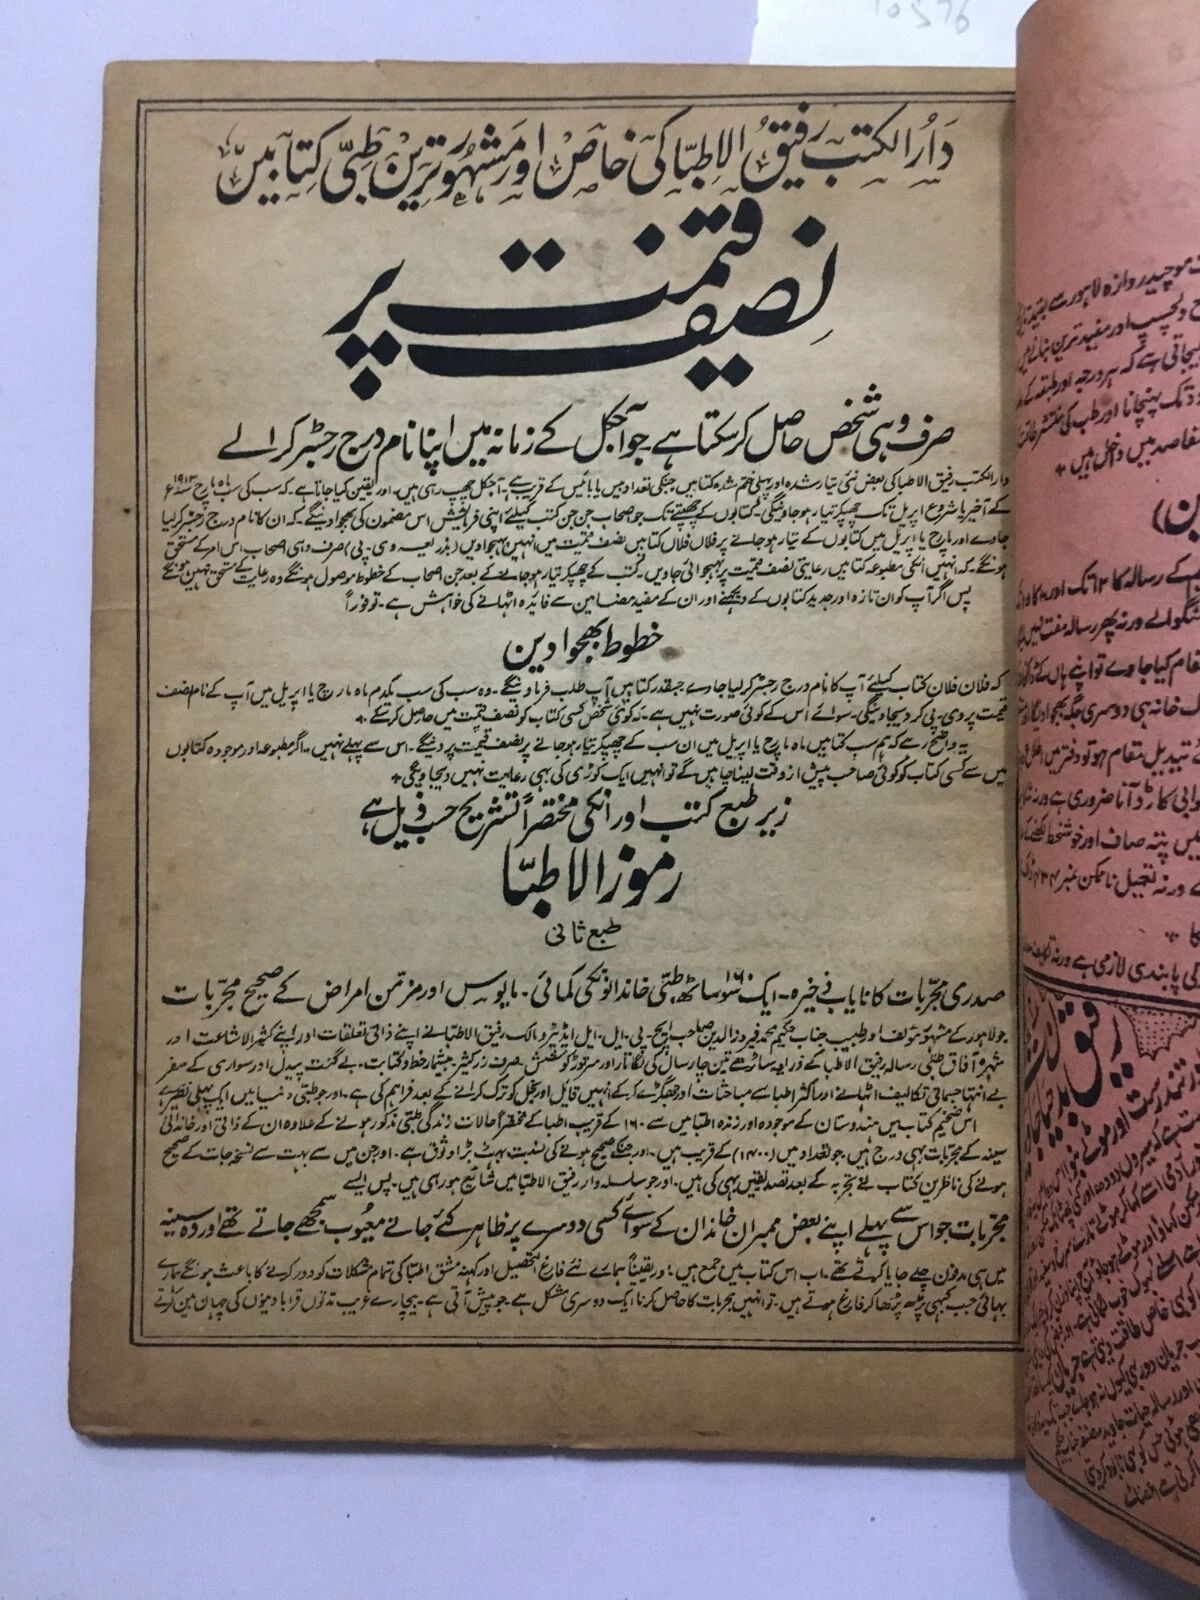 دارالکتب رفیق الاطبا کی خاص اور مشہور ترین طبی کتابیں
نصف قیمت پر
صرف وہی شخص حاصل کر سکتا ہے۔ جو آجکل کے زمانہ میں اپنا نام درج رجسٹر کرالے
دارالکتب رفیق الاطبا کی بعض نئی تیار شدہ اور پہلی ختم شدہ کتابیں جنکی تعداد بیس یا بائیس کے قریب ہے۔ آجکل چھپ رہی ہیں۔ اور یقین کیا جاتا ہے۔ کہ سب کی سب ماہ مارچ ۱۹۱۳ء
کے آخیر یا شروع اپریل تک چھپکر تیار ہو جاوینگی۔ کتابوں کے چھپنے تک جو اصحاب جن جن کتب کیلئے اپنی فرمایش اس مضمون کی بھجوا دینگے۔ کہ ان کا نام درج رجسٹر کر لیا
جاوے اور مارچ یا اپریل میں کتابوں کے تیار ہو جانے پر فلاں فلاں کتابیں نصف قیمت میں انہیں بھجوا دیں (بذریعہ وی۔ پی) صرف وہی اصحاب اس امر کے مستحق
ہونگے۔ کہ انہیں انکی مطبوعہ کتابیں رعایتی نصف قیمت پر بھجوائی جاویں۔ کتب کے چھپکر تیار ہو جانے کے بعد جن اصحاب کے خطوط موصول ہونگے وہ رعایت کے مستحق نہیں ہونگے
پس اگر آپ کو ان تازہ اور جدید کتابوں کے دیکھنے اور ان کے مفید مضامین سے فائدہ اٹھانے کی خواہش ہے۔ تو فوراً
خطوط بھجوا دین
کہ فلان فلان کتاب کیلئے آپ کا نام درج رجسٹر کر لیا جاوے جسقدر کتابیں آپ طلب فرماوینگے۔ وہ سب کی سب یکدم ماہ مارچ یا اپریل میں آپ کے نام نصف
قیمت پر وی۔ پی کر دیجاوینگی۔ سوائے اس کے کوئی صورت نہیں ہے۔ کہ کوئی شخص کسی کتاب کو نصف قیمت میں حاصل کر سکے +
یہ واضح رہے کہ ہم سب کتابیں ماہ مارچ یا اپریل میں ان سب کے چھپکر تیار ہو جانے پر نصف قیمت پر دینگے۔ اس سے پہلے نہیں۔ اگر مطبوعہ اور موجودہ کتابوں
میں سے کسی کتاب کو کوئی صاحب پیش از وقت لینا چاہیں گے تو انہیں ایک کوڑی کی بھی رعایت نہیں دیجاویگی +
زیر طبع کتب اور انکی مختصراً تشریح حسب ذیل ہے
رموز الاطبا
طبع ثانی
صدری مجربات کا نایاب ذخیرہ۔ ایک سو ساٹھ ۱۶۰ طبی خاندانونکی کمائی۔ مایوس اور مزمن امراض کے صحیح مجربات
جو لاہور کے مشہور مؤلف اور طبیب جناب حکیم محمد فیروزالدین صاحب ایچ۔ پی۔ ایل۔ ایل ایڈیٹر و مالک رفیق الاطبا نے اپنے ذاتی تعلقات اور اپنے کثیر الاشاعت اور
شہرۂ آفاق طبی رسالہ رفیق الاطبا کے ذرایعہ ساڑھے تین چار سال کی لگاتار اور سرتوڑ کوشش۔ صرف زر کثیر۔ بیشمار خط و کتابت۔ بے گنت پیدل اور سواری کے سفر
بے انتہا جسمانی تکالیف اٹھانے اور اکثر اطبا سے مباحثات اور جھگڑے کر کے انہیں قائل اور بخل کو ترک کرانے کے بعد فراہم کی ہے۔ اور جو طبی دنیا میں ایک پہلی نظیر ہے
اس ضخیم کتاب میں ہندوستان کے موجودہ اور زندہ اطبا میں سے ۱۶۰ کے قریب اطبا کے مختصراً حالات زندگی طبی مذکور ہونے کے علاوہ ان کے ذاتی اور خاندانی
سینہ کے مجربات بھی درج ہیں۔ جو تعداد میں (۱۴۰۰) کے قریب ہیں۔ اور جنکے صحیح ہونے کی نسبت بہت بڑا وثوق ہے۔ اور جن میں سے بہت سے نسخہ جات کے صحیح
ہونے کی ناظرین کتاب نے تجربہ کے بعد تصدیقیں بھی کی ہیں۔ اور جو سلسلہ وار رفیق الاطبا میں شائع ہو رہی ہیں۔ پس ایسے
مجربات جو اس سے پہلے اپنے بعض ممبران خاندان کے سوائے کسی دوسرے پر ظاہر کئے جانے معیوب سمجھے جاتے تھے اور وہ سینہ
میں ہی مدفون چلے جایا کرتے تھے۔ اب اس کتاب میں جمع ہیں۔ اور یقیناً ہمارے نئے فارغ التحصیل اور کہنہ مشق اطبا کی تمام مشکلات کو دور کرنے کا باعث ہونگے ہمارے
بھائی جب کبھی پڑھ پڑھا کر فارغ ہوتے ہیں۔ تو انہیں مجربات کا حاصل کرنا ایک دوسری مشکل ہے۔ جو پیش آتی ہے۔ بیچارے غریب مدتوں قرابادینوں کی چھان بین کرتے
موچیدروازہ لاہور سے
دلچسپ اور مفید ترین بنانے میں
کیجاتی ہے کہ ہر درجہ اور طبقہ کے
تک پہنچانا اور طب کی منتشر طاقت
مقاصد میں داخل ہیں +
کے رسالہ کا ۱۲ تک اور
منگوالے ورنہ پھر رسالہ مفت نہیں
مقام کیا جاوے تو اپنے ہاں کے ڈاکخانہ
خانہ ہی دوسری جگہ بھجوا دیگا
تبدیل مقام ہو تو دفتر میں اطلاع
جوابی کارڈ آنا ضروری ہے ورنہ
میں پتہ صاف اور خوشخط لکھنے
ورنہ تعمیل ناممکن نمبر
کی پابندی لازمی ہے ورنہ
رفیق
تندرست اور موٹے ہو